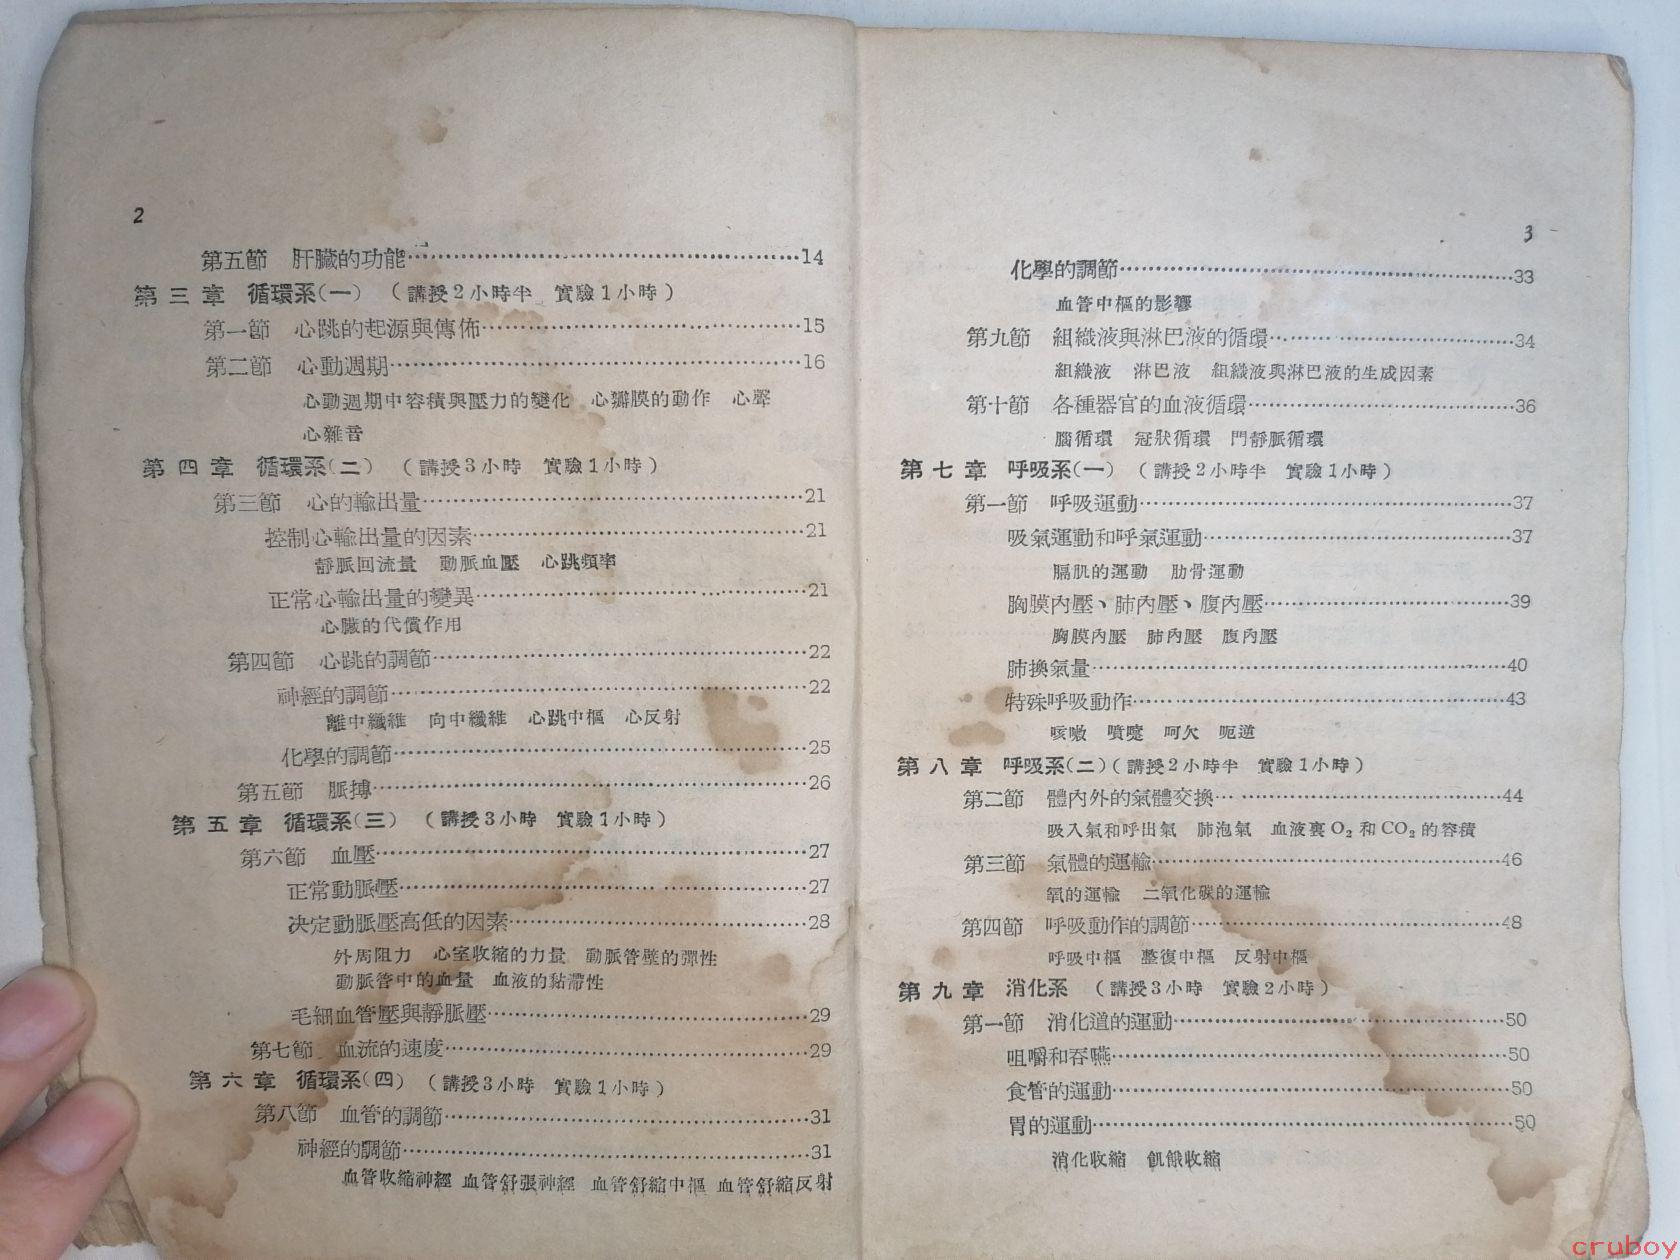 2
第五節 肝臟的功能……14
第三章 循環系(一) (講授2小時半 實驗1小時)
第一節 心跳的起源與傳佈……15
第二節 心動週期……16
心動週期中容積與壓力的變化 心瓣膜的動作 心聲
心雜音
第四章 循環系(二) (講授3小時 實驗1小時)
第三節 心的輸出量……21
控制心輸出量的因素……21
靜脈回流量 動脈血壓 心跳頻率
正常心輸出量的變異……21
心臟的代償作用
第四節 心跳的調節……22
神經的調節……22
離中纖維 向中纖維 心跳中樞 心反射
化學的調節……25
第五節 脈搏……26
第五章 循環系(三) (講授3小時 實驗1小時)
第六節 血壓……27
正常動脈壓……27
決定動脈壓高低的因素……28
外周阻力 心室收縮的力量 動脈管壁的彈性
動脈管中的血量 血液的黏滯性
毛細血管壓與靜脈壓……29
第七節 血流的速度……29
第六章 循環系(四) (講授3小時 實驗1小時)
第八節 血管的調節……31
神經的調節……31
血管收縮神經 血管舒張神經 血管舒縮中樞 血管舒縮反射
3
化學的調節……33
血管中樞的影響
第九節 組織液與淋巴液的循環……34
組織液 淋巴液 組織液與淋巴液的生成因素
第十節 各種器官的血液循環……36
腦循環 冠狀循環 門靜脈循環
第七章 呼吸系(一) (講授2小時半 實驗1小時)
第一節 呼吸運動……37
吸氣運動和呼氣運動……37
膈肌的運動 肋骨運動
胸膜內壓、肺內壓、腹內壓……39
胸膜內壓 肺內壓 腹內壓
肺換氣量……40
特殊呼吸動作……43
咳嗽 噴嚏 呵欠 呃逆
第八章 呼吸系(二) (講授2小時半 實驗1小時)
第二節 體內外的氣體交換……44
吸入氣和呼出氣 肺泡氣 血液裏O₂和CO₂的容積
第三節 氣體的運輸……46
氧的運輸 二氧化碳的運輸
第四節 呼吸動作的調節……48
呼吸中樞 整復中樞 反射中樞
第九章 消化系 (講授3小時 實驗2小時)
第一節 消化道的運動……50
咀嚼和吞嚥……50
食管的運動……50
胃的運動……50
消化收縮 飢餓收縮
cruboy